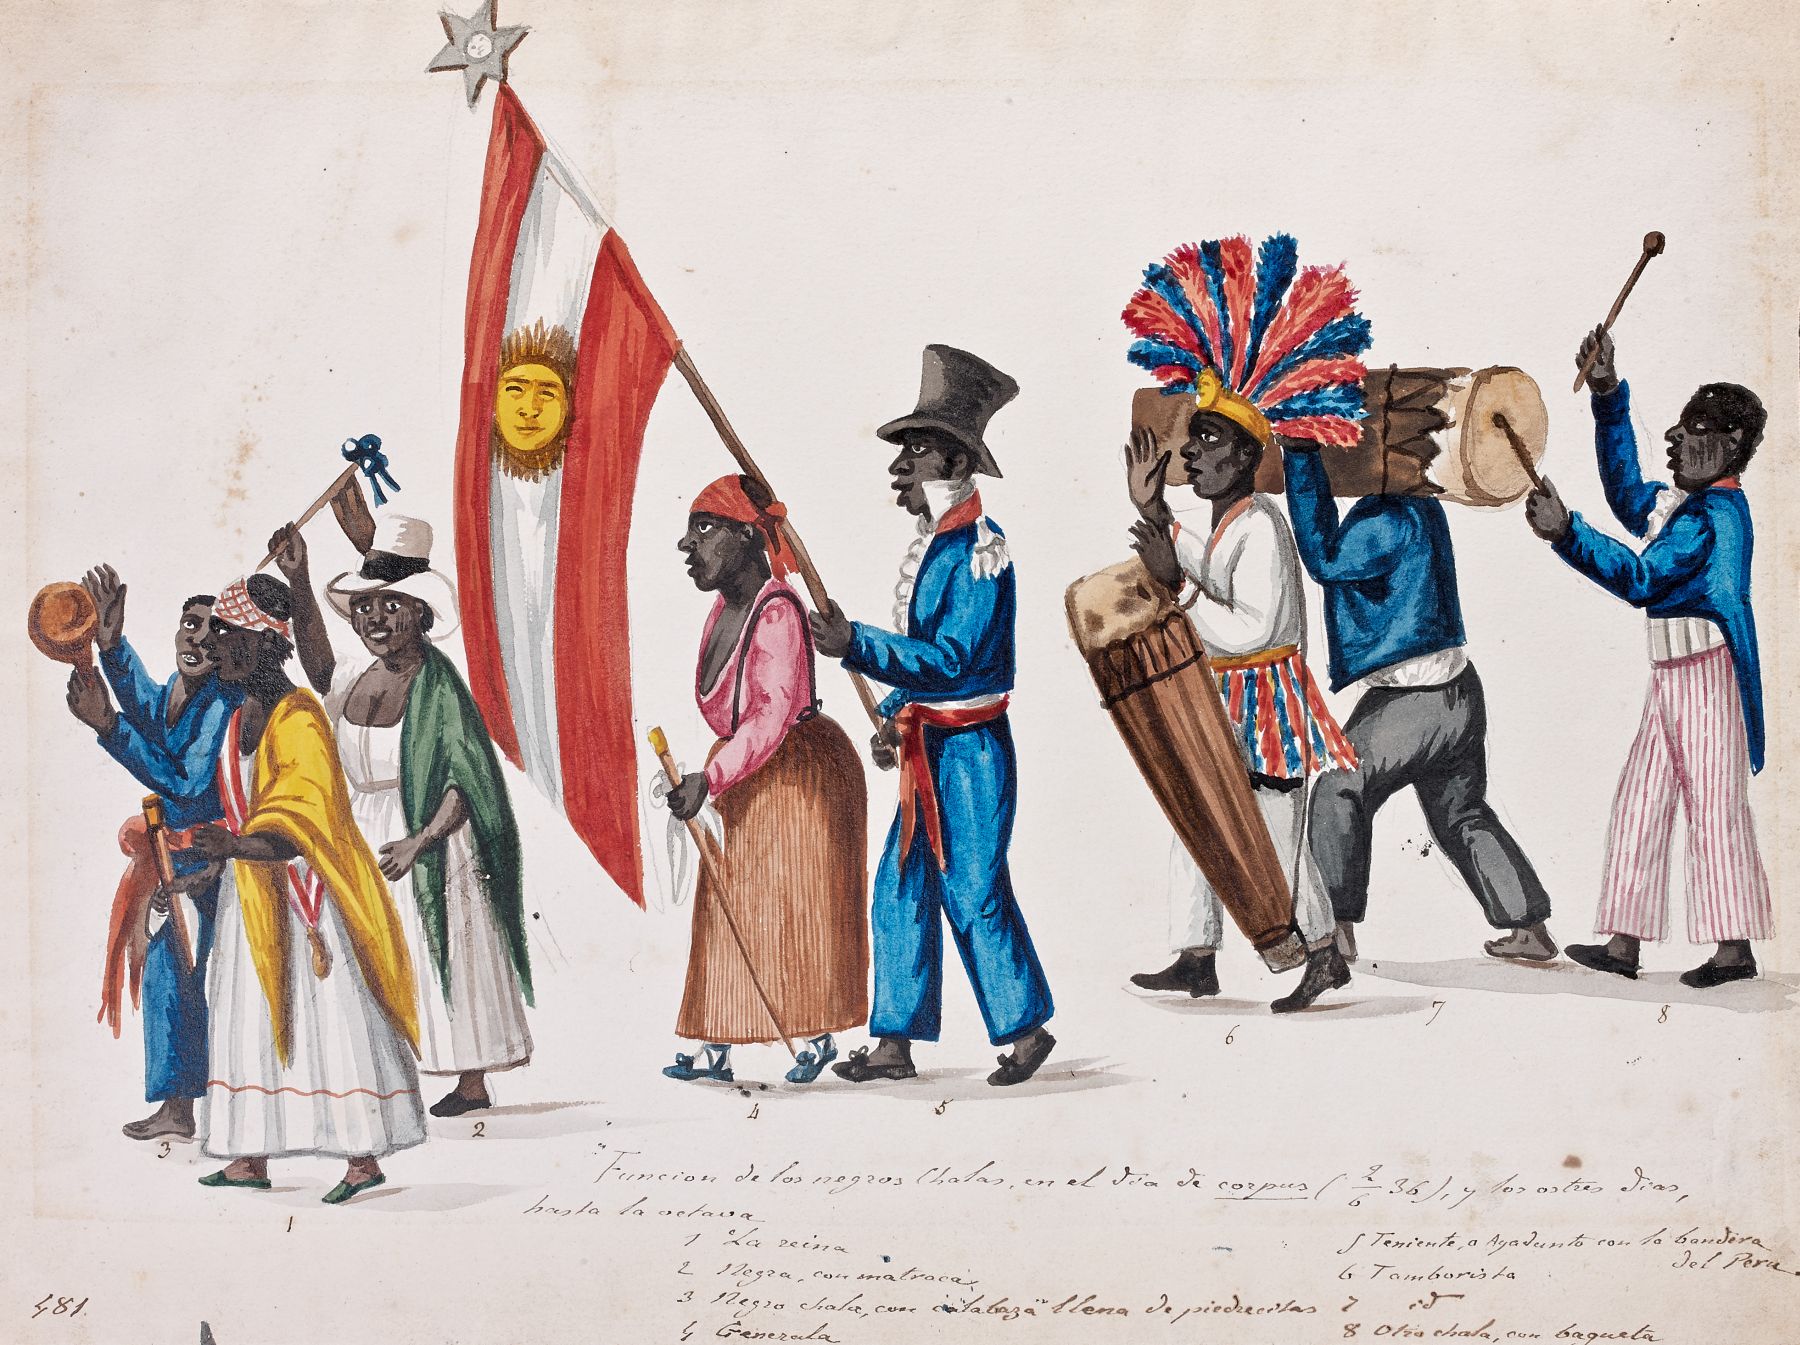 3
2
1
4
5
6
7
8
"Funcion de los negros Chalas, en el dia de corpus (2/6 36), y los ostres dias,
hasta la octava
1 La reina
2 Negra, con matraca
3 Negro chala, con calabaza llena de piedrecitas
4 Generala
5 Teniente, o Ayadunto con la bandera
del Peru.
6 Tamborista
7 id
8 Otro chala, con baqueta
481.